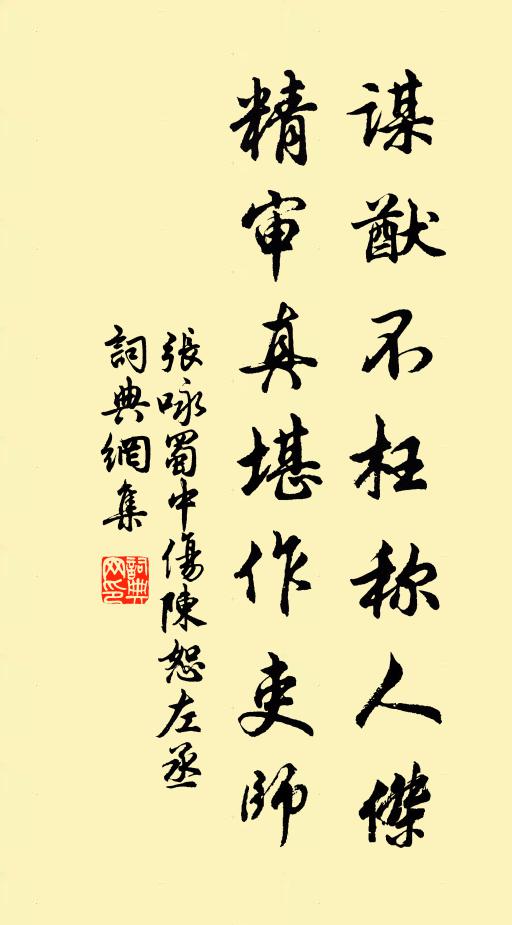 謀猷不枉称人傑
精审真堪作吏師
張咏蜀中傷陳恕左丞
詞典網集
詞典
网印